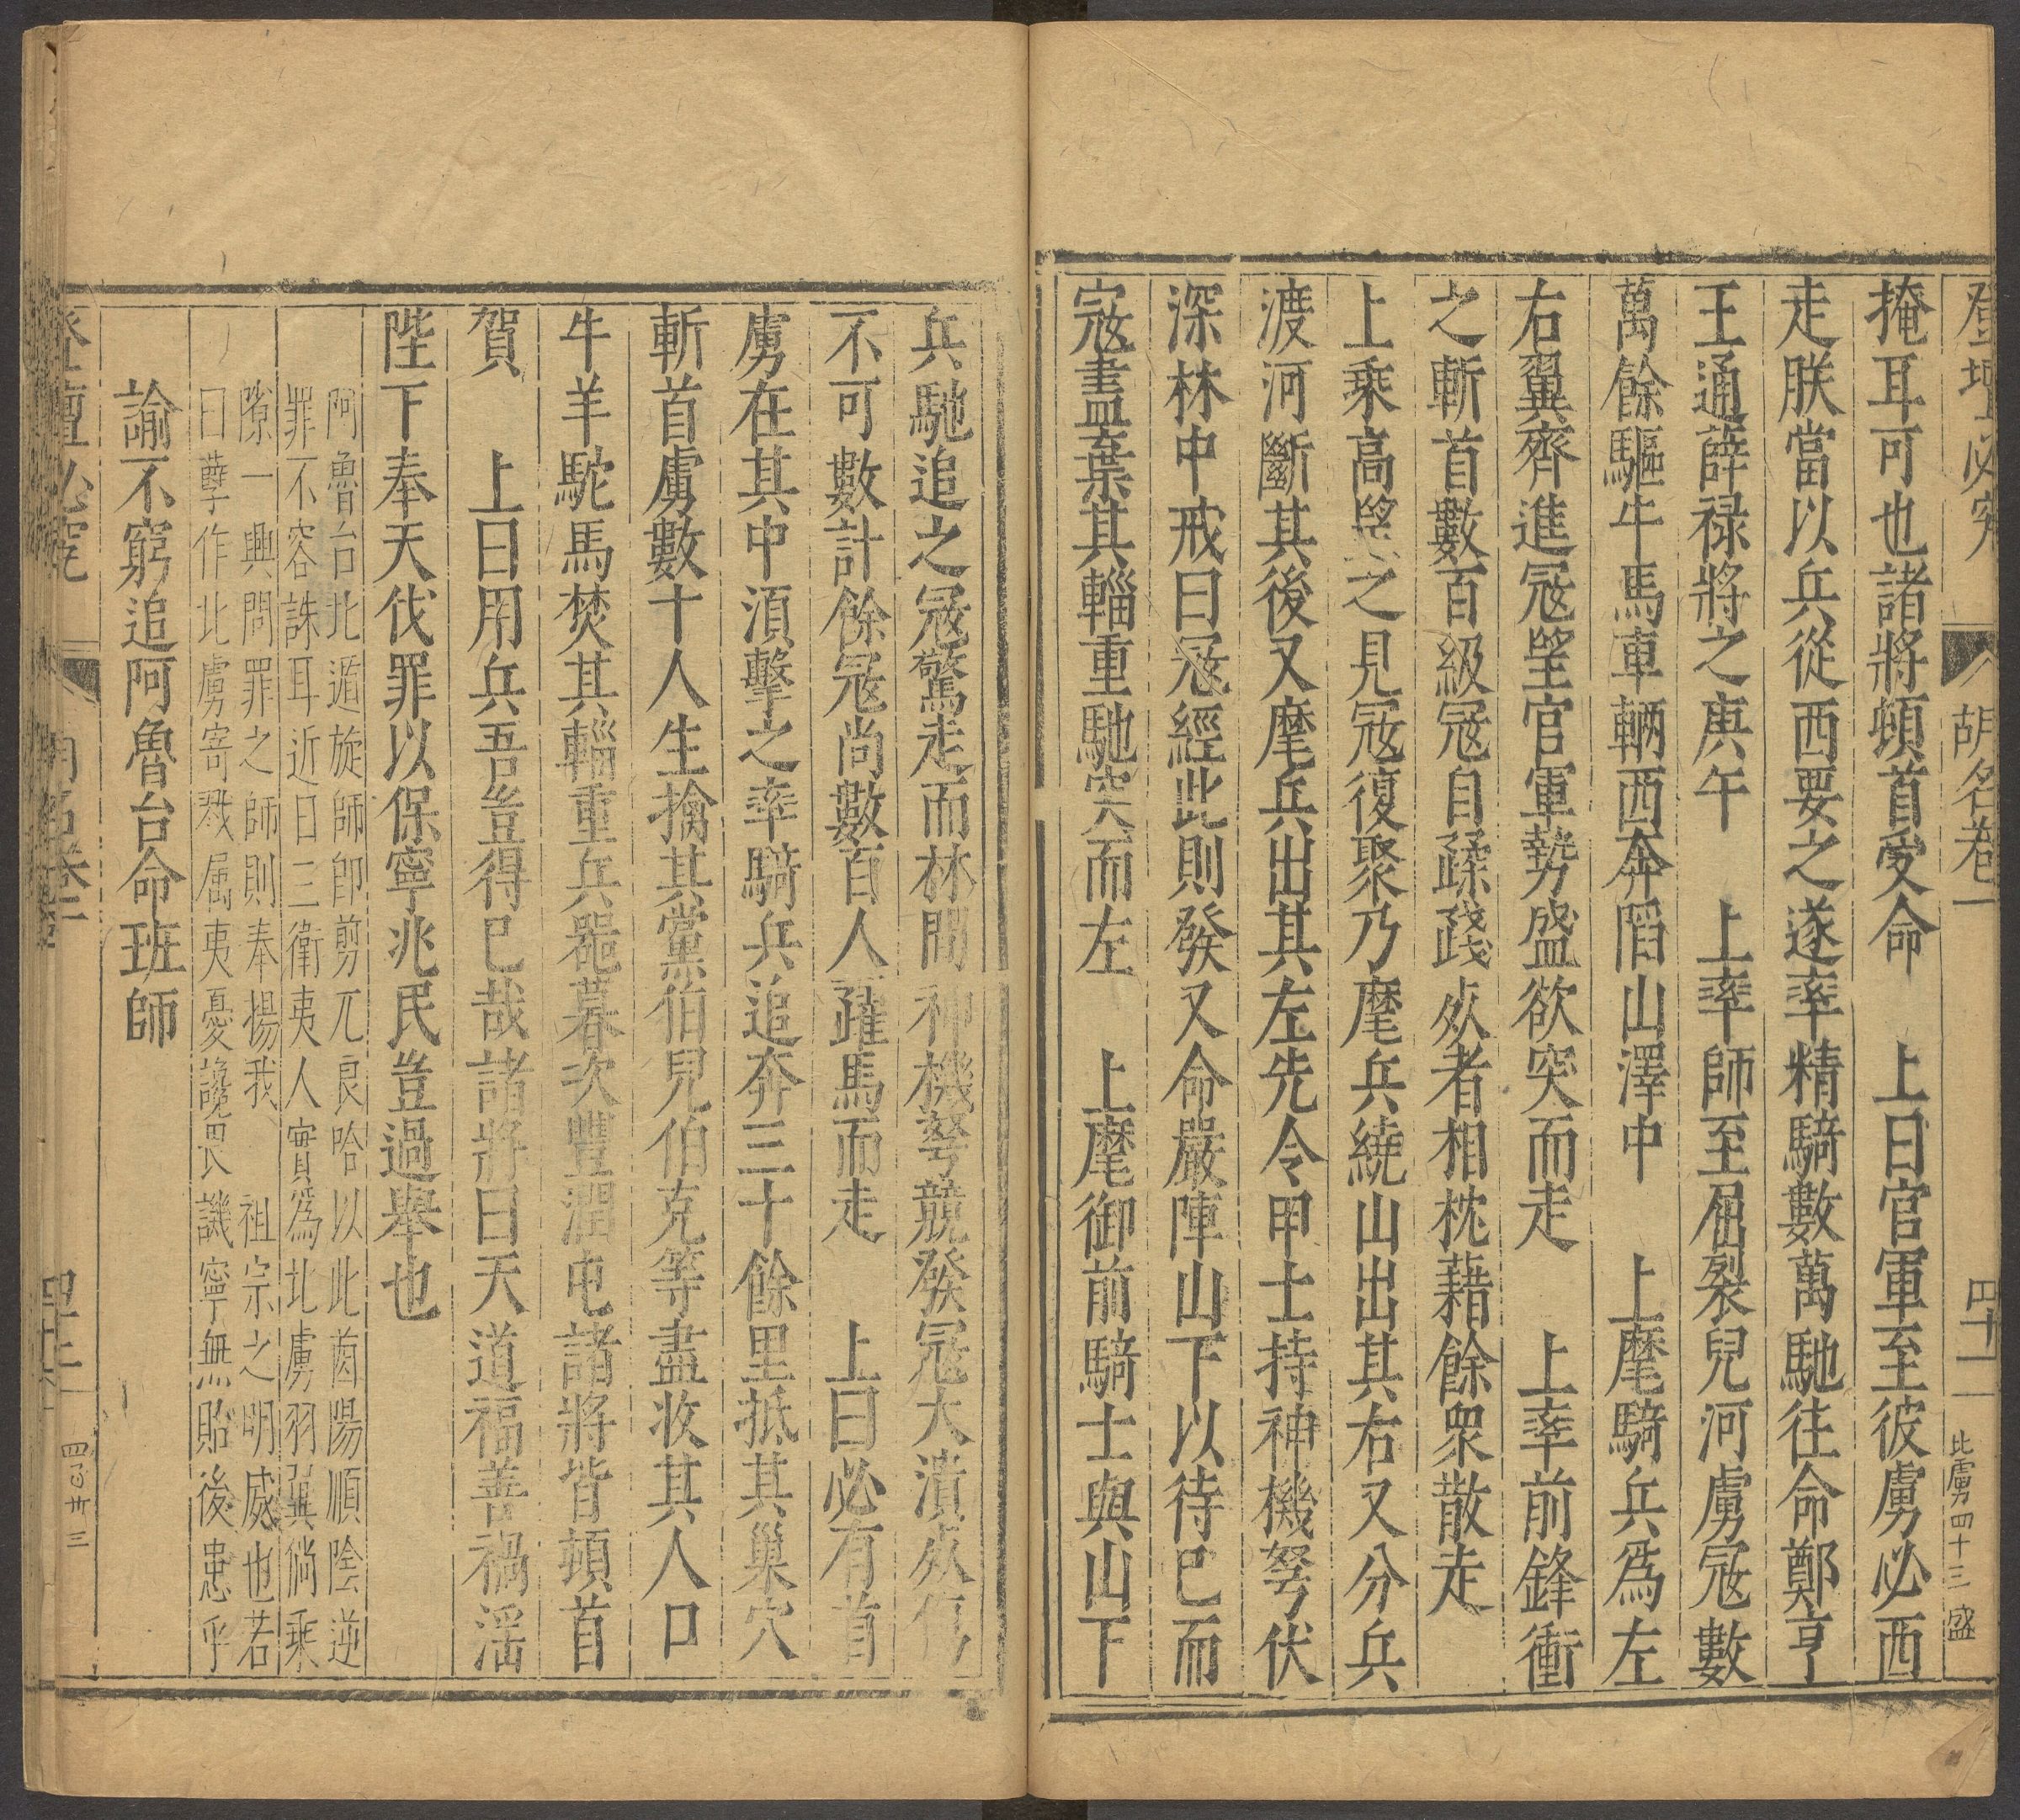 登壇必究 胡名卷一 四十一 北虜四十三 盛
掩耳可也諸將頓首受命 上曰官軍至彼虜必西
走朕當以兵從西要之遂率精騎數萬馳往命鄭亨
王通薛祿將之庚午 上率師至屈裂兒河虜寇數
萬餘驅牛馬車輛西奔陷山澤中 上麾騎兵爲左
右翼齊進寇望官軍勢盛欲突而走 上率前鋒衝
之斬首數百級寇自蹂踐死者相枕藉餘衆散走
上乘高望之見寇復聚乃麾兵繞山出其右又分兵
渡河斷其後又麾兵出其左先令甲士持神機弩伏
深林中戒曰寇經此則發又命嚴陣山下以待已而
寇盡棄其輜重馳突而左 上麾御前騎士與山下
兵馳追之寇驚走而林間神機弩競發寇大潰死傷
不可數計餘寇尚數百人躍馬而走 上曰必有首
虜在其中湏擊之率騎兵追奔三十餘里抵其巢穴
斬首虜數十人生擒其黨伯兒伯克等盡收其人口
牛羊駝馬焚其輜重兵器暮次豐潤屯諸將皆頓首
賀 上曰用兵吾豈得已哉諸將曰天道福善禍淫
陛下奉天伐罪以保寧兆民豈過舉也
阿魯台北遁旋師即剪兀良哈以此菌陽順陰逆
罪不容誅耳近日三衛夷人實爲北虜羽翼倘乘
隙一興問罪之師則奉揚我 祖宗之明威也若
曰孽作北虜寄戮屬夷憂讒畏譏寧無貽後患乎
諭不窮追阿魯台命班師
登壇必究
四心廿三